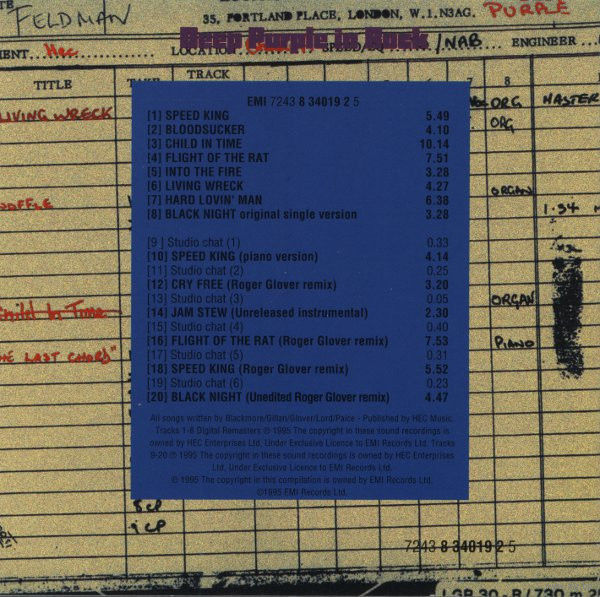 FELDMAN
35, PORTLAND PLACE, LONDON, W.1.N3AG.
PURPLE
Deep Purple In Rock
Hec
LOCATION
/NAB
ENGINEER
TITLE
TAKE
TRACK
6
7
8
LIVING WRECK
ORG
MASTER
ORG
EMI 7243 8 34019 2 5
[1] SPEED KING 5.49
[2] BLOODSUCKER 4.10
[3] CHILD IN TIME 10.14
[4] FLIGHT OF THE RAT 7.51
[5] INTO THE FIRE 3.28
[6] LIVING WRECK 4.27
[7] HARD LOVIN' MAN 6.38
[8] BLACK NIGHT original single version 3.28
[9 ] Studio chat (1) 0.33
[10] SPEED KING (piano version) 4.14
[11] Studio chat (2) 0.25
[12] CRY FREE (Roger Glover remix) 3.20
[13] Studio chat (3) 0.05
[14] JAM STEW (Unreleased instrumental) 2.30
[15] Studio chat (4) 0.40
[16] FLIGHT OF THE RAT (Roger Glover remix) 7.53
[17] Studio chat (5) 0.31
[18] SPEED KING (Roger Glover remix) 5.52
[19] Studio chat (6) 0.23
[20] BLACK NIGHT (Unedited Roger Glover remix) 4.47
All songs written by Blackmore/Gillan/Glover/Lord/Paice - Published by HEC Music.
Tracks 1-8 Digital Remasters ℗ 1995 The copyright in these sound recordings is
owned by HEC Enterprises Ltd, Under Exclusive Licence to EMI Records Ltd. Tracks
9-20 ℗ 1995 The copyright in these sound recordings is owned by HEC Enterprises
Ltd, Under Exclusive Licence to EMI Records Ltd.
℗ 1995 The copyright in this compilation is owned by EMI Records Ltd.
©1995 EMI Records Ltd.
ORGAN
1.34
Child In Time
ORGAN
PIANO
THE LAST CHORD"
7243 8 34019 2 5